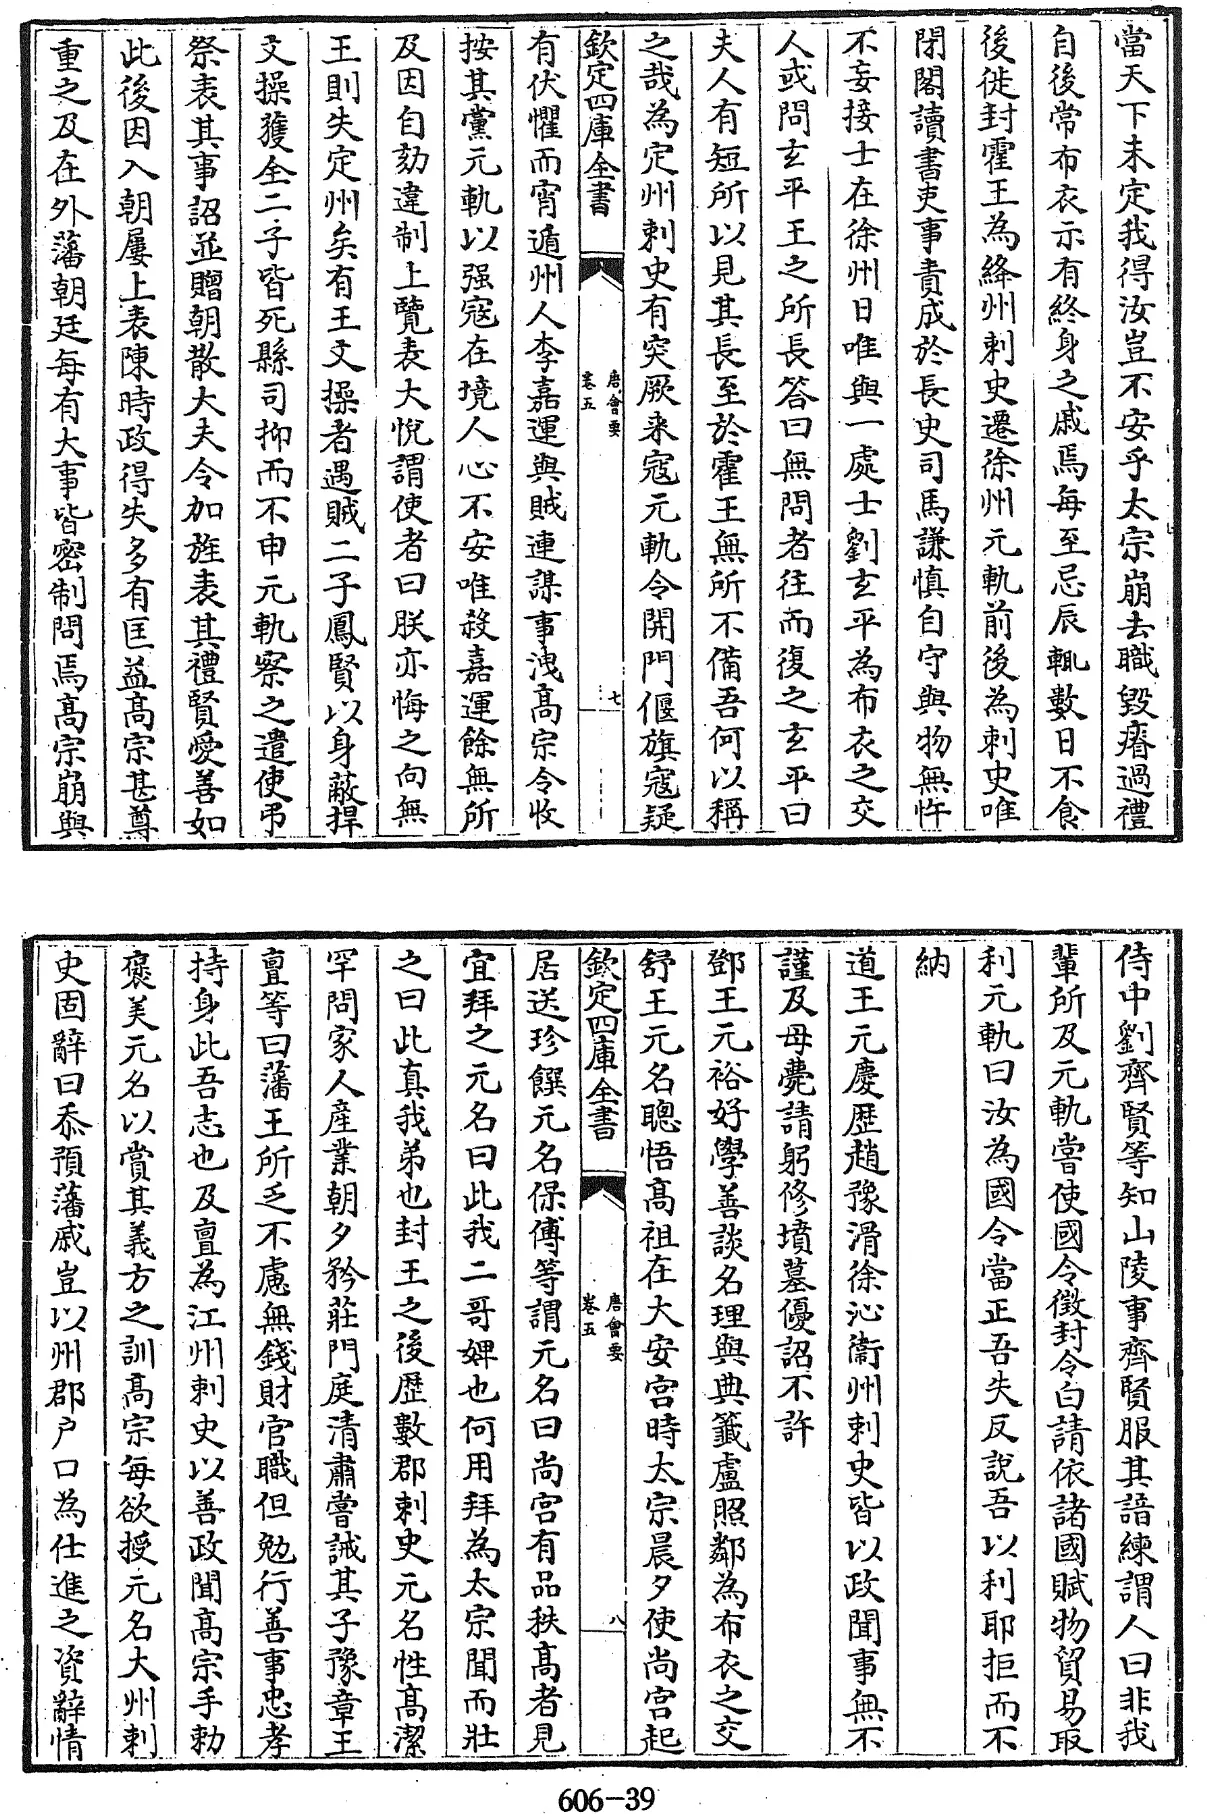 當天下未定我得汝豈不安乎太宗崩去職毀瘠過禮
自後常布衣示有終身之戚焉每至忌辰輒數日不食
後徙封霍王為絳州刺史遷徐州元軌前後為刺史唯
閉閣讀書吏事責成於長史司馬謙慎自守與物無忤
不妄接士在徐州日唯與一處士劉玄平為布衣之交
人或問玄平王之所長答曰無問者往而復之玄平曰
夫人有短所以見其長至於霍王無所不備吾何以稱
之哉為定州刺史有突厥来寇元軌令開門偃旗寇疑
欽定四庫全書
唐會要
卷五
七
有伏懼而宵遁州人李嘉運與賊連謀事洩高宗令收
按其黨元軌以强寇在境人心不安唯殺嘉運餘無所
及因自劾違制上覽表大悅謂使者曰朕亦悔之向無
王則失定州矣有王文操者遇賊二子鳳賢以身蔽捍
文操獲全二子皆死縣司抑而不申元軌察之遣使弔
祭表其事詔並贈朝散大夫令加旌表其禮賢愛善如
此後因入朝屢上表陳時政得失多有匡益高宗甚尊
重之及在外藩朝廷每有大事皆密制問焉高宗崩與
侍中劉齊賢等知山陵事齊賢服其諳練謂人曰非我
輩所及元軌嘗使國令徵封令白請依諸國賦物貿易取
利元軌曰汝為國令當正吾失反說吾以利耶拒而不
納
道王元慶歷趙豫滑徐沁衞州刺史皆以政聞事無不
謹及母薨請躬修墳墓優詔不許
鄧王元裕好學善談名理與典籤盧照鄰為布衣之交
舒王元名聰悟高祖在大安宮時太宗晨夕使尚宮起
欽定四庫全書
唐會要
卷五
八
居送珍饌元名保傅等謂元名曰尚宮有品秩高者見
宜拜之元名曰此我二哥婢也何用拜為太宗聞而壯
之曰此真我弟也封王之後歷數郡刺史元名性高潔
罕問家人産業朝夕矜莊門庭清肅嘗誡其子豫章王
亶等曰藩王所乏不慮無錢財官職但勉行善事忠孝
持身此吾志也及亶為江州刺史以善政聞高宗手勅
褒美元名以賞其義方之訓高宗每欲授元名大州刺
史固辭曰忝預藩戚豈以州郡户口為仕進之資辭情
606-39